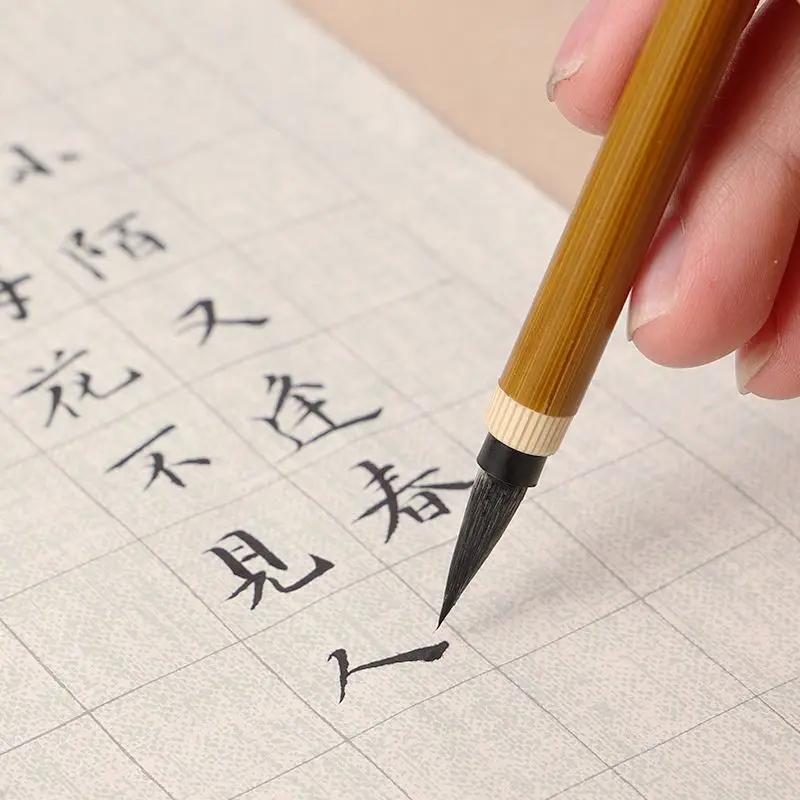 小陌又逢春
花不見人